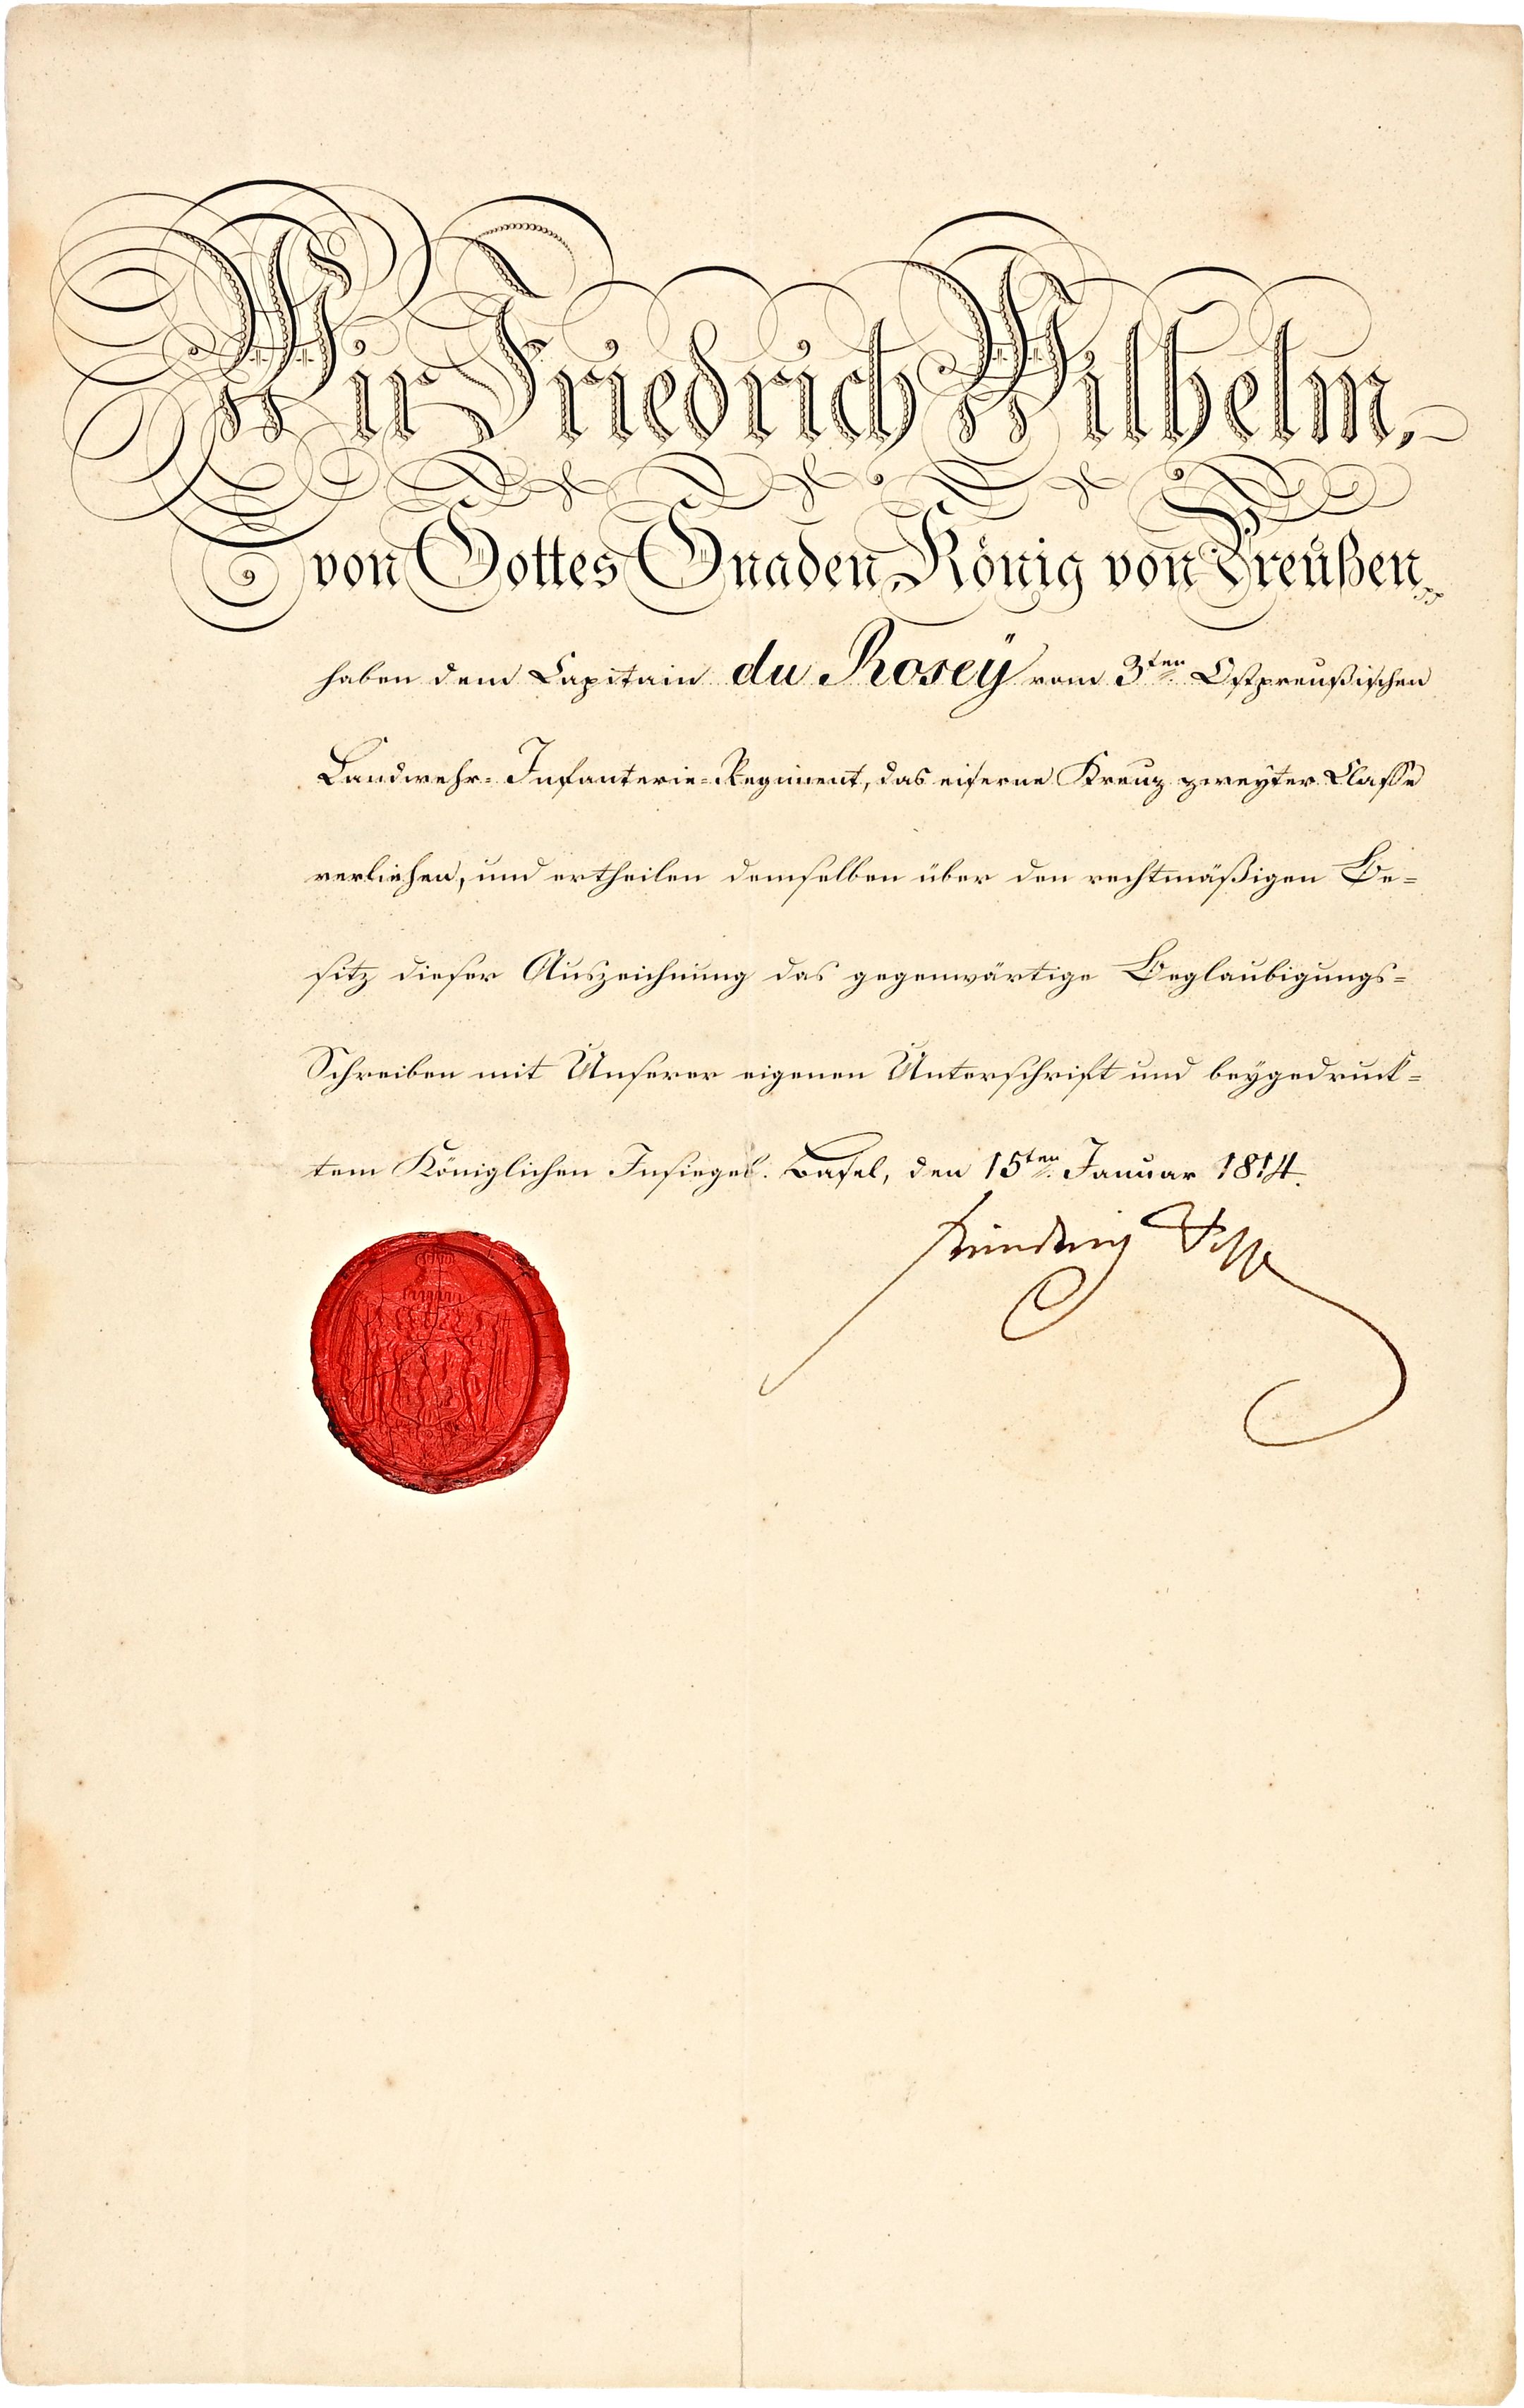 Wir Friedrich Wilhelm,
von Gottes Gnaden König von Preußen pp
haben dem Capitain du Roseÿ vom 3ten Ostpreußischen
Landwehr-Infanterie-Regiment, das eiserne Kreuz zweyter Classe
verliehen, und ertheilen demselben über den rechtmäßigen Be=
sitz dieser Auszeichnung das gegenwärtige Beglaubigungs=
Schreiben mit Unserer eigenen Unterschrift und beygedruck=
tem Königlichen Insiegel. Basel, den 15ten Januar 1814.
Friedrich Wilhelm